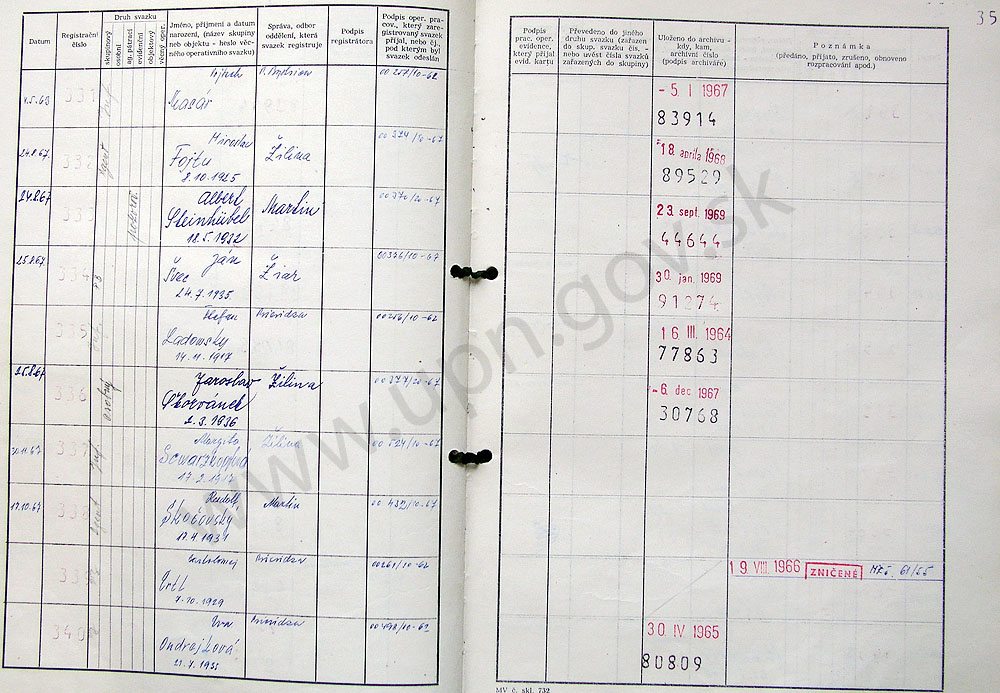 35
Datum
Registrační číslo
Druh svazku
skupinový
osobní
ag. pátrací
evidenční
objektový
věcný oper.
Jméno, příjmení a datum
narození, (název skupiny
neb objektu - heslo věc-
ného operativního svazku)
Správa, odbor
oddělení, která
svazek registruje
Podpis
registrátora
Podpis oper. pra-
cov., který zare-
gistrovaný svazek
přijal, nebo čj.,
pod kterým byl
svazek odeslán
Podpis
prac. oper.
evidence,
který přijal
evid. kartu
Převedeno do jiného
druhu svazku (zařazen
do skup. svazku čís. -
nebo uvést čísla svazků
zařazených do skupiny)
Uloženo do archivu -
kdy, kam,
archivní číslo
(podpis archiváře)
Poznámka
(předáno, přijato, zrušeno, obnoveno
rozpracování apod.)
331
Macár
00257/10-62
- 5. I 1967
83914
24.8.67
332
agent
Miroslav
Fojtu
8.10.1925
Žilina
00374/20-67
18. apríla 1968
89529
24.8.67
333
Albert
Steinhübel
18.5.1932
Martin
00370/20-67
23. sept. 1969
44644
25.8.67
334
Ján
Švec
24.7.1935
Žiar
00376/10-67
30. jan. 1969
91274
335
Štefan
Ladowsky
14.11.1917
Prievidza
00256/10-62
16. III 1964
77863
25.8.67
336
osobný
Jaroslav
Skovránek
2.3.1936
Žilina
00377/20-67
- 6. dec 1967
30768
337
Margita
Žilina
00524/10-67
17.10.67
338
agent
Rudolf
Skačovský
17.4.1931
Martin
00432/10-67
339
Vrtl
7.10.1929
Prievidza
00261/10-62
19. VIII. 1966
ZNIČENÉ
340
Eva
Ondrejková
Prievidza
00498/10-62
30. IV 1965
80809
MV č. skl. 732
www.upn.gov.sk